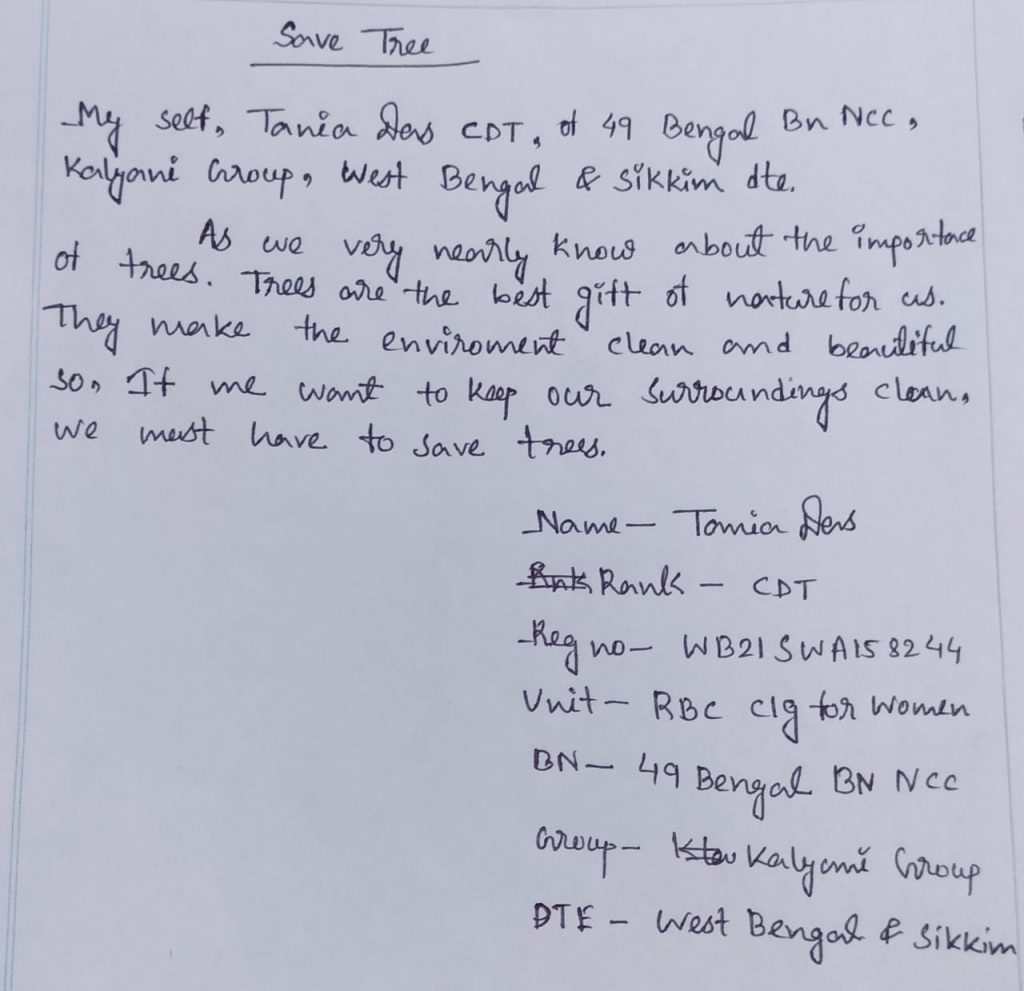 Save Tree
My self, Tania Das CDT, of 49 Bengal Bn NCC,
Kalyani Group, West Bengal & Sikkim dte.
As we very nearly know about the importace
of trees. Trees are the best gift of nature for us.
They make the enviroment clean and beautiful
so, If me want to keep our surroundings clean,
we must have to save trees.
Name - Tania Das
Rank - CDT
Reg no - WB21SWA158244
Unit - RBC clg for Women
BN - 49 Bengal BN NCC
Group - Kalyani Group
DTE - West Bengal & Sikkim